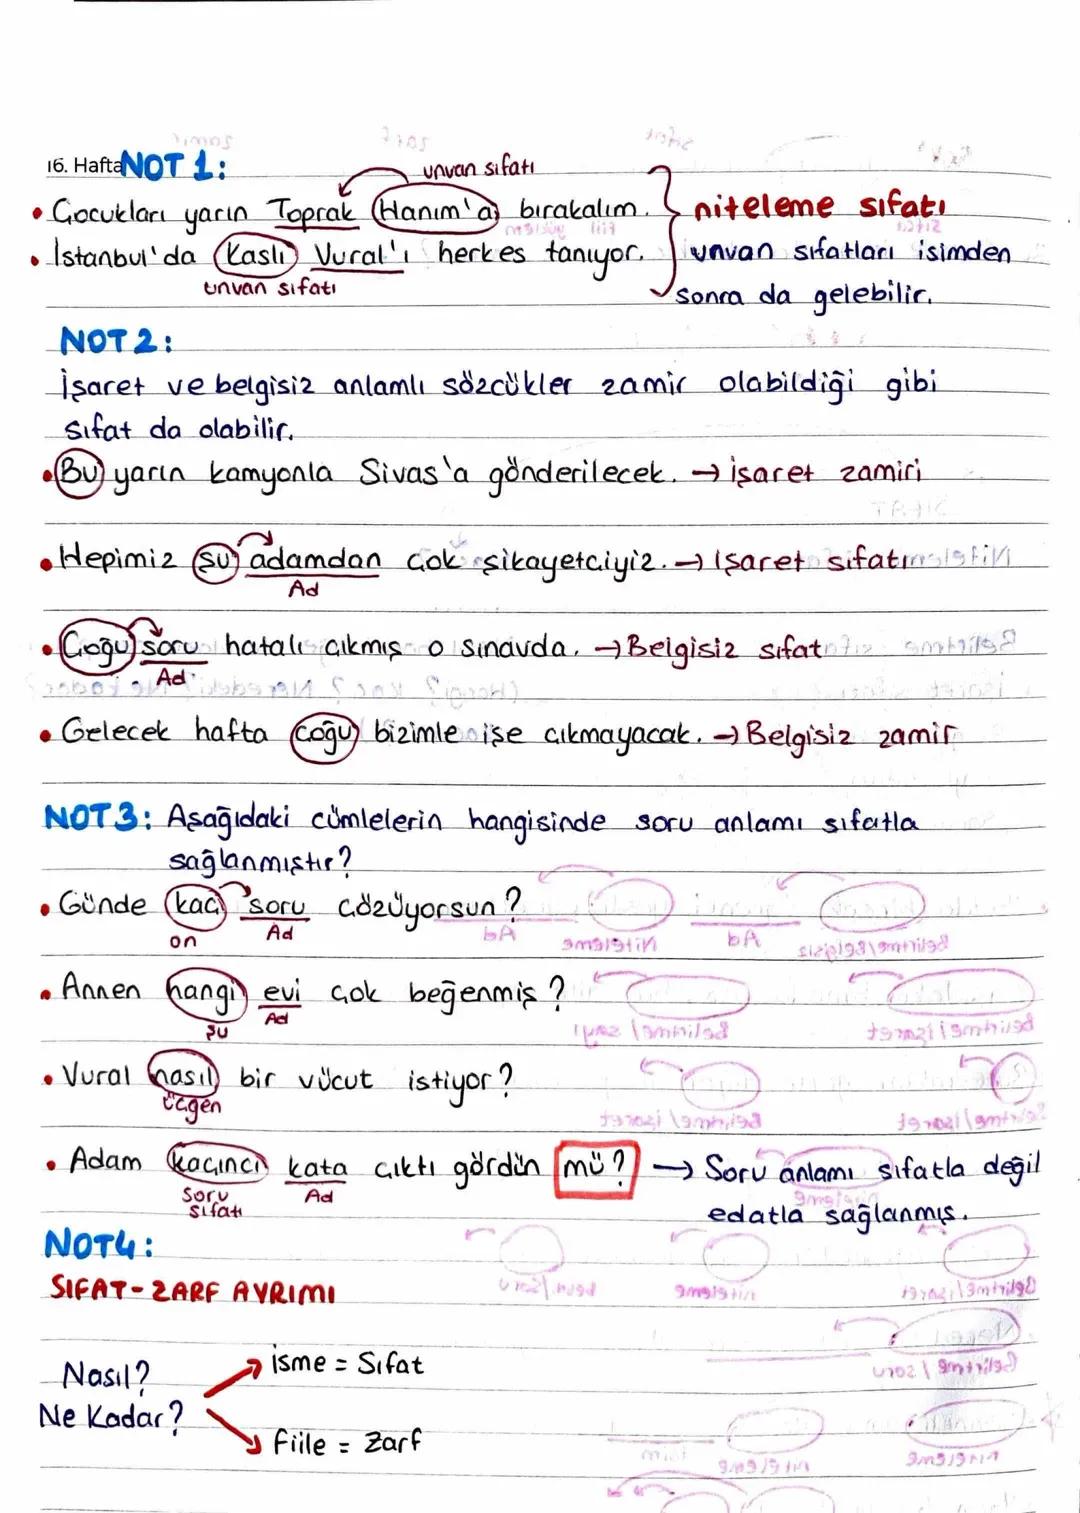 16. Hafta NOT 1:
unvan sıfatı
• Çocukları yarın Toprak Hanım'a bırakalım. } niteleme sıfatı
• İstanbul'da Kaslı Vural'ı herkes tanıyor. unvan sıfatları isimden
unvan sıfatı sonra da gelebilir.
NOT 2:
İşaret ve belgisiz anlamlı sözcükler zamir olabildiği gibi
sıfat da olabilir.
• Bu yarın kamyonla Sivas'a gönderilecek. → işaret zamiri
• Hepimiz şu adamdan çok şikayetçiyiz. → Işaret sıfatı
Ad
• Çoğu soru hatalı çıkmış o sınavda. → Belgisiz sıfat
Ad
• Gelecek hafta çoğu bizimle işe çıkmayacak. → Belgisiz zamir
NOT 3: Aşağıdaki cümlelerin hangisinde soru anlamı sıfatla
sağlanmıştır?
• Günde kaç soru çözüyorsun?
on Ad
• Annen hangi evi çok beğenmiş?
şu Ad
• Vural nasıl bir vücut istiyor?
üçgen
• Adam kaçıncı kata çıktı gördün mü? → Soru anlamı sıfatla değil
Soru Ad
sıfatı edatla sağlanmış.
NOT4:
SIFAT-ZARF AYRIMI
isme = Sıfat
Nasıl?
Ne Kadar?
fiile = Zarf